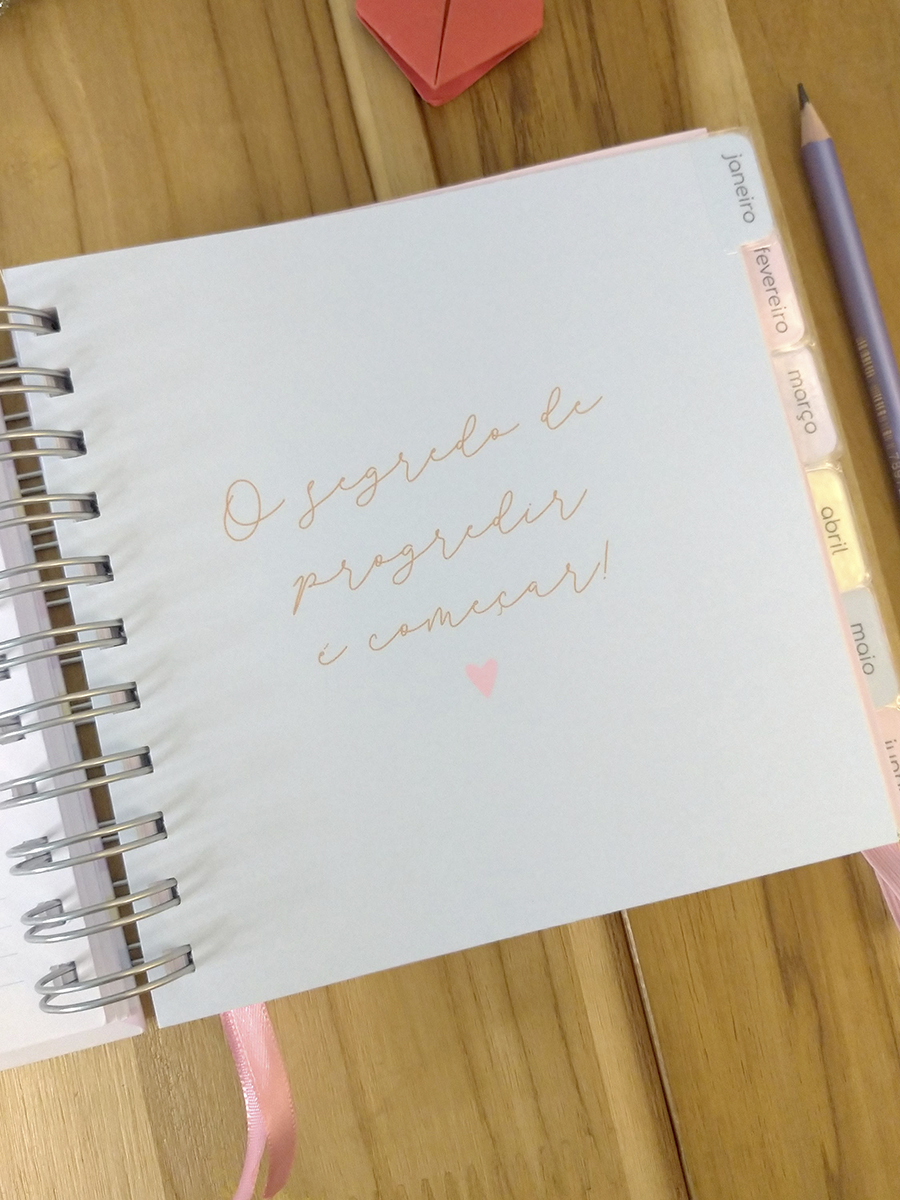 O segredo de
progredir
é começar!
janeiro
fevereiro
março
abril
maio